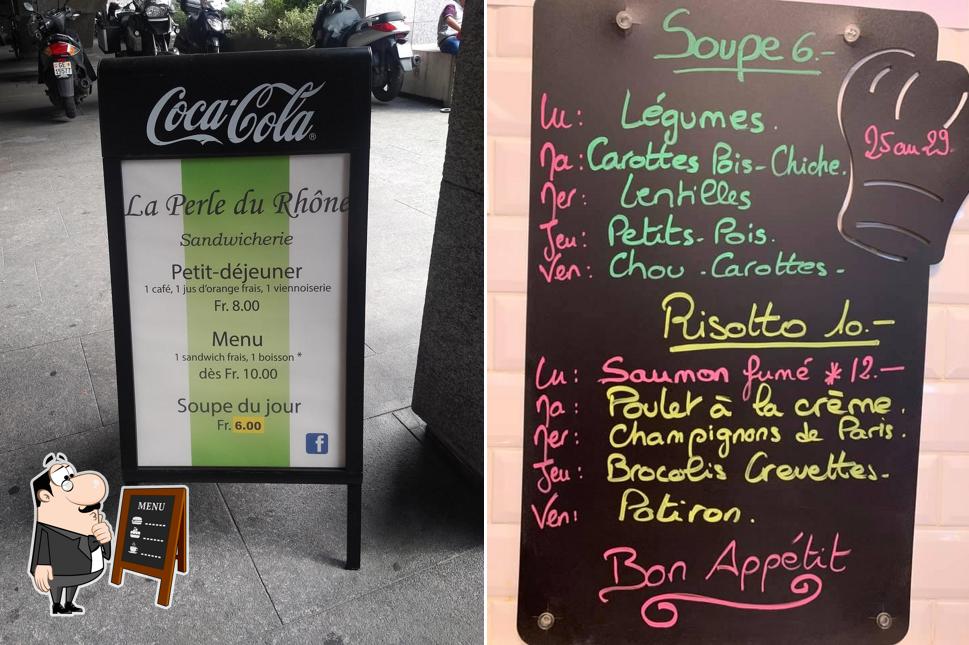 GE
15577
Coca-Cola®
La Perle du Rhône
Sandwicherie
Petit-déjeuner
1 café, 1 jus d'orange frais, 1 viennoiserie
Fr. 8.00
Menu
1 sandwich frais, 1 boisson *
dès Fr. 10.00
Soupe du jour
Fr. 6.00
f
MENU
Soupe 6.-
25 au 29.
Lu: Légumes.
Ma: Carottes Pois-Chiche.
Mer: Lentilles
Jeu: Petits-Pois.
Ven: Chou-Carottes-
Risotto 10.-
Lu: Saumon fumé * 12.-
Ma: Poulet à la crème.
Mer: Champignons de Paris.
Jeu: Brocolis Crevettes-
Ven: Potiron.
Bon Appétit